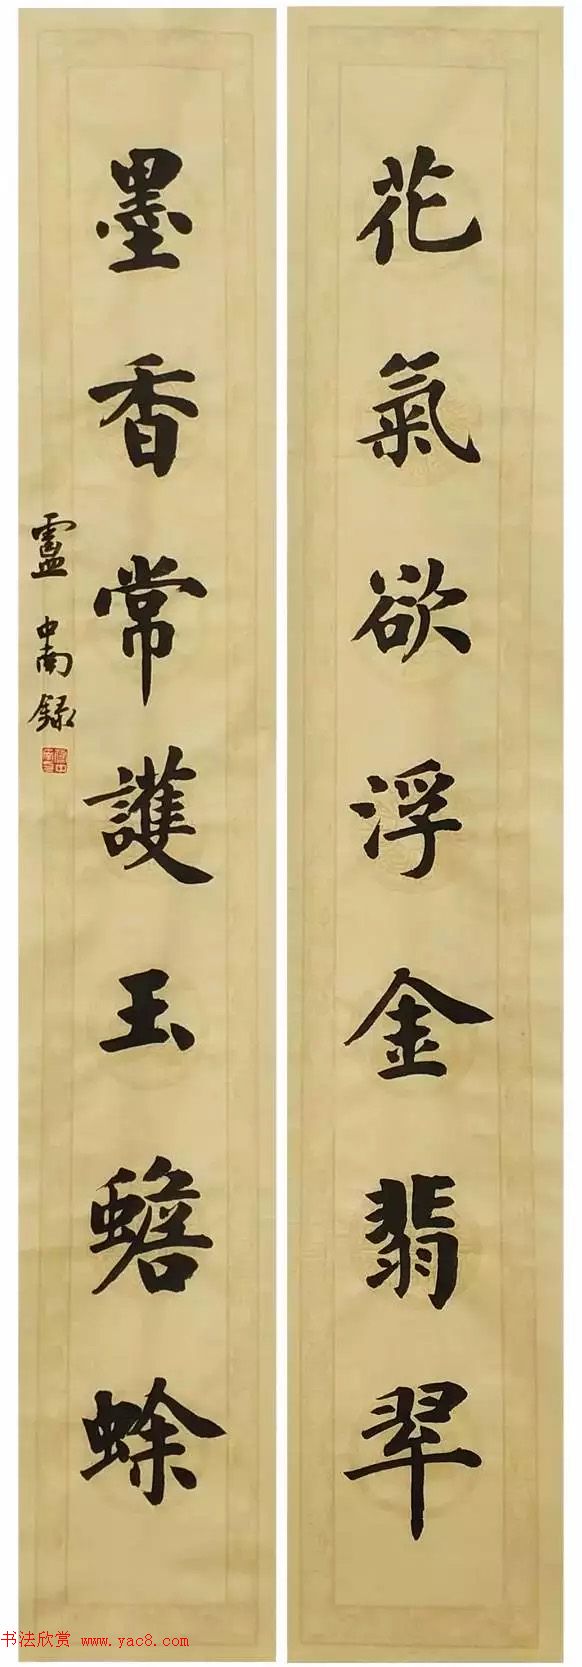 花氣欲浮金翡翠
墨香常護玉蟾蜍
盧中南錄
书法欣赏 www.yac8.com